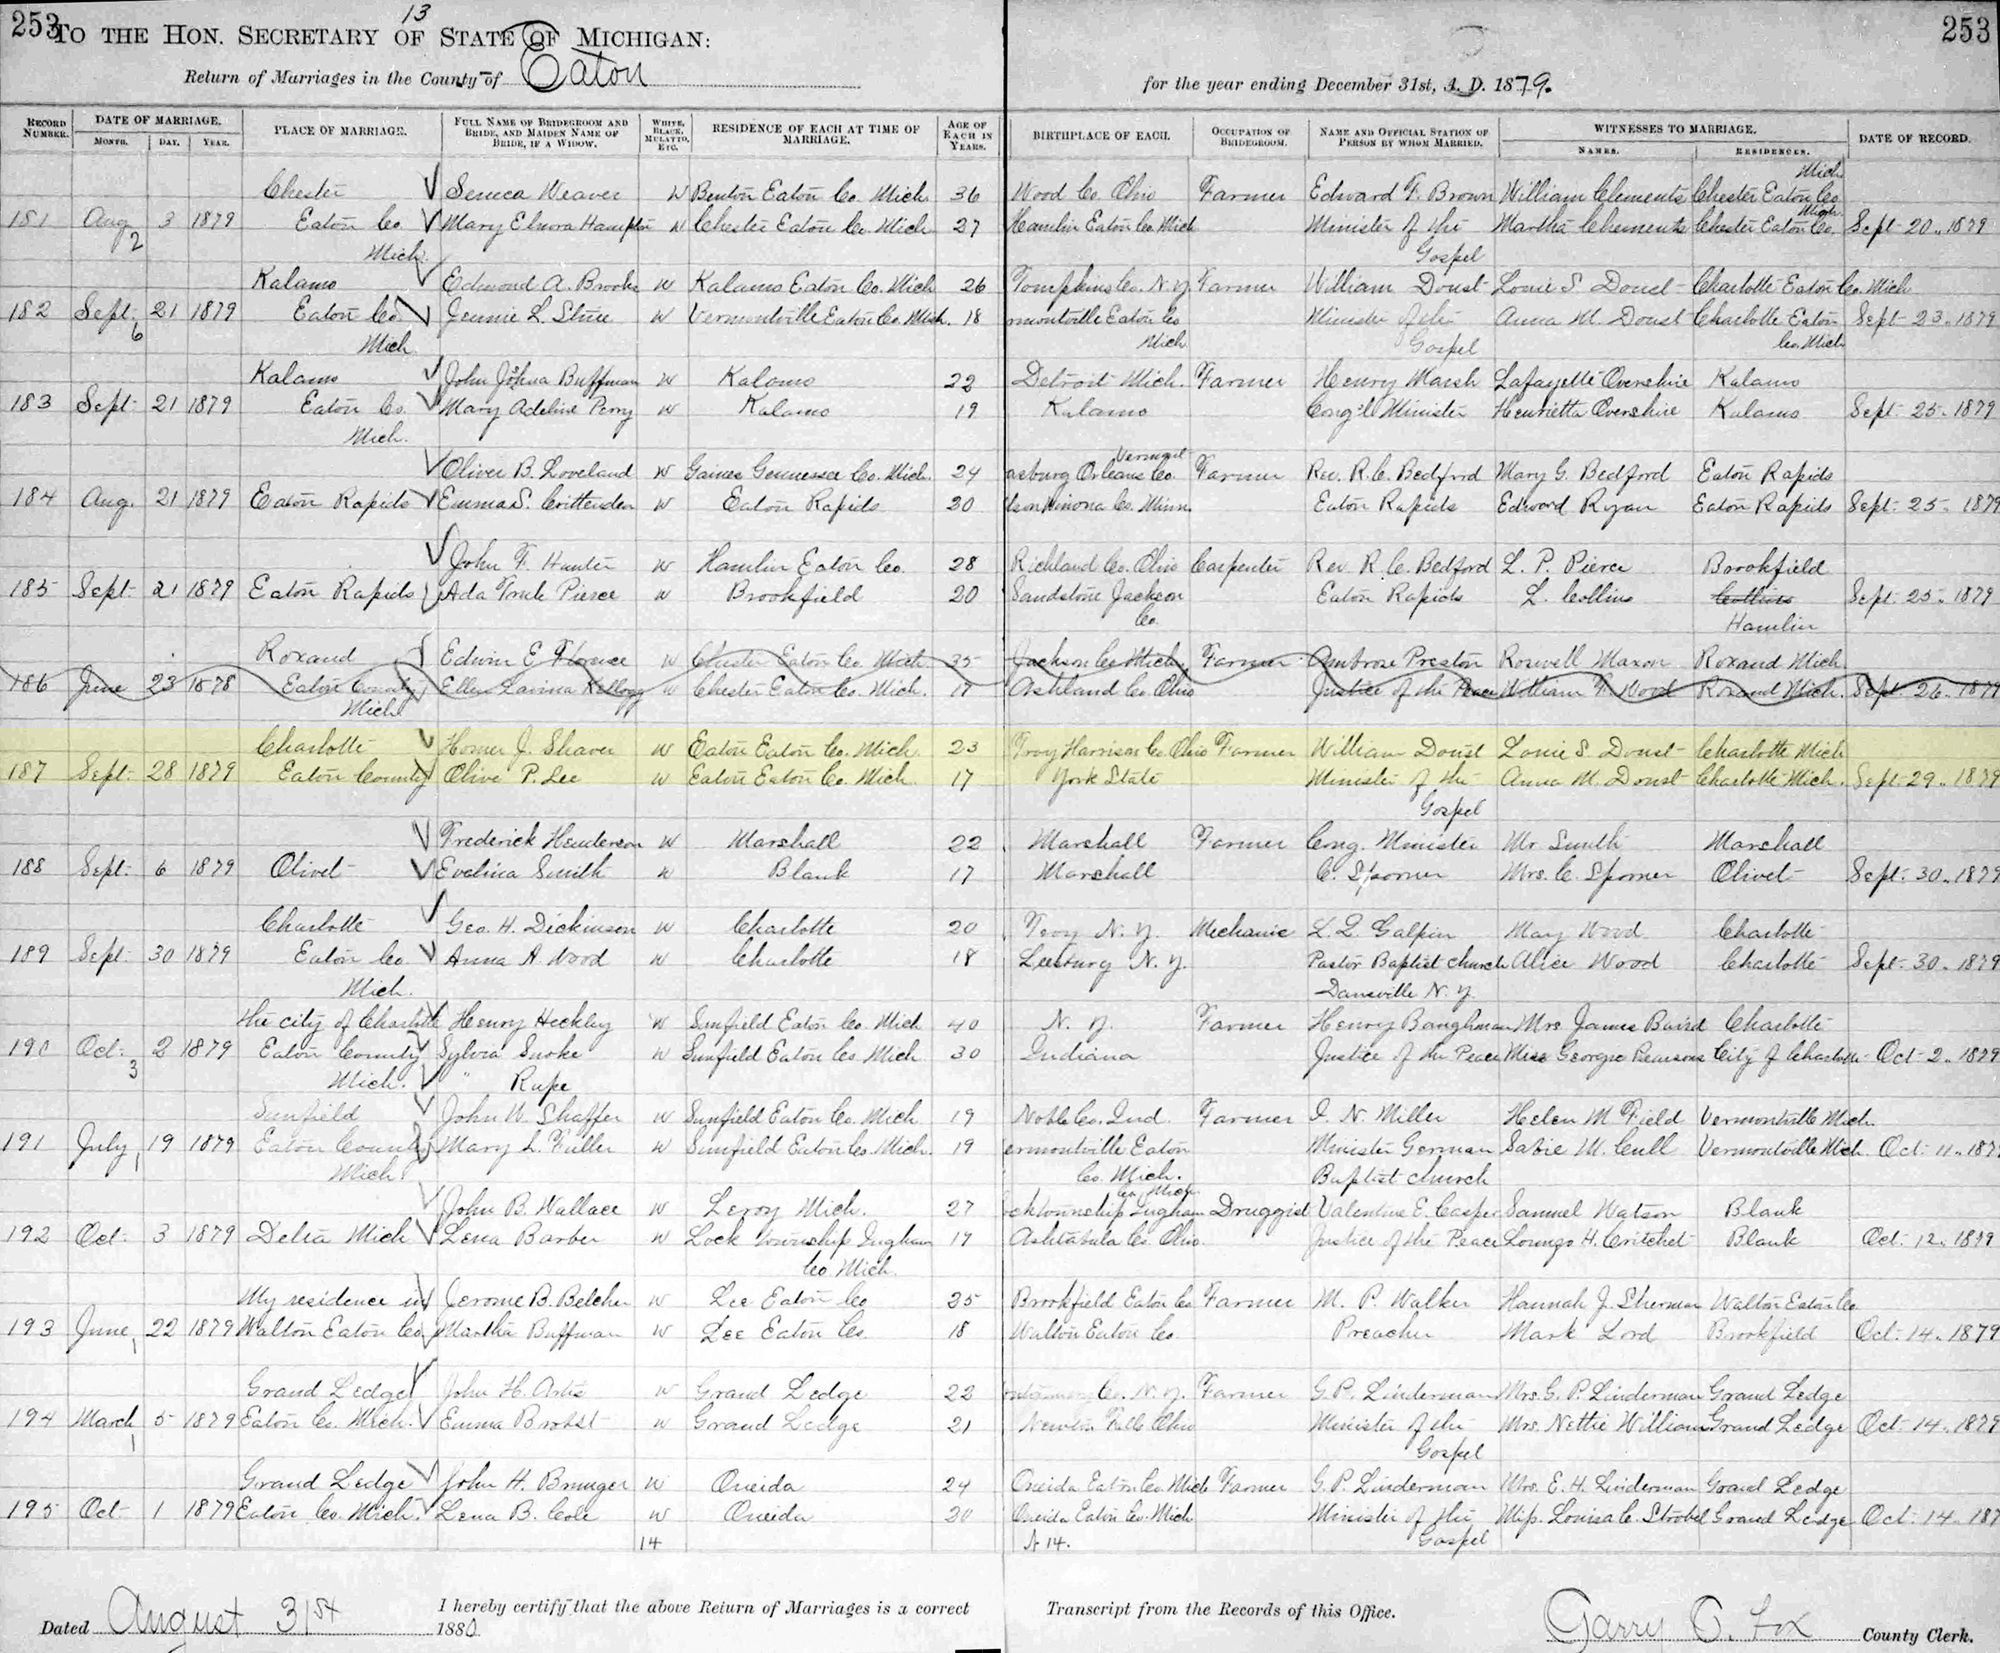 253 13 253
TO THE HON. SECRETARY OF STATE OF MICHIGAN:
Return of Marriages in the County of Eaton for the year ending December 31st, A. D. 1879.
RECORD NUMBER. DATE OF MARRIAGE. MONTH. DAY. YEAR. PLACE OF MARRIAGE. FULL NAME OF BRIDEGROOM AND BRIDE, AND MAIDEN NAME OF BRIDE, IF A WIDOW. WHITE, BLACK, MULATTO, ETC. RESIDENCE OF EACH AT TIME OF MARRIAGE. AGE OF EACH IN YEARS. BIRTHPLACE OF EACH. OCCUPATION OF BRIDEGROOM. NAME AND OFFICIAL STATION OF PERSON BY WHOM MARRIED. WITNESSES TO MARRIAGE. NAMES. RESIDENCES. DATE OF RECORD.
Mich
Chester Seneca Weaver W Benton Eaton Co. Mich 36 Wood Co. Ohio Farmer Edward F. Brown William Clements Chester Eaton Co
Mich.
181 Aug 3 1879 Eaton Co Mary Elnora Hampton W Chester Eaton Co. Mich 27 Hamlin Eaton Co. Mich Minister of the Martha Clements Chester Eaton Co. Sept 20. 1879
2 Mich. Gospel
Kalamo Edmond A. Brooks W Kalamo Eaton Co. Mich 26 Tompkins Co. N.Y Farmer William Doust Louie S Doust Charlotte Eaton Co. Mich
182 Sept. 21 1879 Eaton Co Jennie L. W Vermontville Eaton Co. Mich. 18 rmontville Eaton Co Minister of the Anna M. Doust Charlotte Eaton Sept 23. 1879
6 Mich Mich Gospel Co. Mich
Kalamo John Joshua Buffman W Kalamo 22 Detroit Mich. Farmer Henry Marsh Lafayette Overshire Kalamo
183 Sept. 21 1879 Eaton Co. Mary Adeline Perry W Kalamo 19 Kalamo Cong'l Minister Henrietta Overshire Kalamo Sept. 25. 1879
Mich.
Vermont
Oliver B. Loveland W Gaines Gennessee Co. Mich. 24 Orleans Co. Farmer Rev. R. C. Bedford Mary G. Bedford Eaton Rapids
184 Aug. 21 1879 Eaton Rapids Emma S. Crittenden W Eaton Rapids 20 Winona Co. Minn. Eaton Rapids Edward Ryan Eaton Rapids Sept. 25. 1879
John F. Hunter W Hamlin Eaton Co. 28 Richland Co. Ohio Carpenter Rev R. C. Bedford L. P. Pierce Brookfield
185 Sept. 21 1879 Eaton Rapids Ada Pierce W Brookfield 20 Sandstone Jackson Eaton Rapids L. Collins Collins Sept. 25. 1879
Co. Hamlin
Roxand Edwin E Florence W Chester Eaton Co. Mich. 35 Jackson Co Mich. Farmer Ambrose Preston Roswell Maxon Roxand Mich
186 June 23 1878 Eaton County Ellen Lavina Kellogg W Chester Eaton Co. Mich. 17 Ashland Co. Ohio Justice of the Peace William F. Wood Roxand Mich. Sept. 26. 1879
Mich
Charlotte Homer J. Shaver W Eaton Eaton Co. Mich. 23 Troy Harrison Co. Ohio Farmer William Doust Louie S. Doust Charlotte Mich
187 Sept. 28 1879 Eaton County Olive P. Lee W Eaton Eaton Co. Mich. 17 York State Minister of the Anna M. Doust Charlotte Mich. Sept. 29. 1879
Gospel
Frederick Henderson W Marshall 22 Marshall Farmer Cong. Minister Mr Smith Marshall
188 Sept. 6 1879 Olivet Evelina Smith W Blank 17 Marshall C. Spooner Mrs. C. Spooner Olivet Sept. 30. 1879
Charlotte Geo. H. Dickinson W Charlotte 20 Troy N. Y. Mechanic L. L. Galpin May Wood Charlotte
189 Sept. 30 1879 Eaton Co. Anna A Wood W Charlotte 18 N. Y. Pastor Baptist church Alice Wood Charlotte Sept. 30. 1879
Mich. Dansville N. Y.
the city of Charlotte Henry Heckley W Sunfield Eaton Co. Mich 40 N. Y. Farmer Henry Baughman Mrs James Baird Charlotte
190 Oct. 2 1879 Eaton County Sylvia Snoke W Sunfield Eaton Co. Mich 30 Indiana Justice of the Peace Miss Georgie Pearsons City of Charlotte Oct. 2. 1879
3 Mich. " Rupe
Sunfield John W. Shaffer W Sunfield Eaton Co. Mich 19 Noble Co. Ind. Farmer I. N. Miller Helen M Field Vermontville Mich.
191 July 19 1879 Eaton County Mary L. Fuller W Sunfield Eaton Co. Mich. 19 ermontville Eaton Minister German M. Cull Vermontville Mich. Oct. 11. 187
1 Mich. Co. Mich. Baptist church
Co. Mich.
John B. Wallace W Leroy Mich. 27 cktownship Ingham Druggist Valentine E. Casper Samuel Watson Blank
192 Oct. 3 1879 Delta Mich Lena Barber W Lock Township Ingham 17 Ashtabula Co. Ohio. Justice of the Peace Lorenzo H. Critchet Blank Oct. 12. 1879
Co. Mich.
My residence in Jerome B. Belcher W Lee Eaton Co 25 Brookfield Eaton Co Farmer M. P. Walker Hannah J. Sherman Walton Eaton Co
193 June 22 1879 Walton Eaton Co. Martha Buffman W Lee Eaton Co. 18 Walton Eaton Co. Preacher Mark Lord Brookfield Oct. 14. 1879
1
Grand Ledge John H. W Grand Ledge 22 Co. N. Y. Farmer G. P. Linderman Mrs. G. P. Linderman Grand Ledge
194 March 5 1879 Eaton Co. Mich. Emma Brobst W Grand Ledge 21 Newton Falls Ohio Minister of the Mrs Nettie Williams Grand Ledge Oct. 14. 1879
1 Gospel
Grand Ledge John H. W Oneida 24 Oneida Eaton Co. Mich Farmer G. P. Linderman Mrs. E. H. Linderman Grand Ledge
195 Oct. 1 1879 Eaton Co. Mich. Lena B. Cole W Oneida 20 Oneida Eaton Co. Mich Minister of the Miss. Louisa C. Strobel Grand Ledge Oct. 14. 187
14 N 14. Gospel
Dated August 31st 1880. I hereby certify that the above Return of Marriages is a correct Transcript from the Records of this Office.
Garry O. Fox County Clerk.